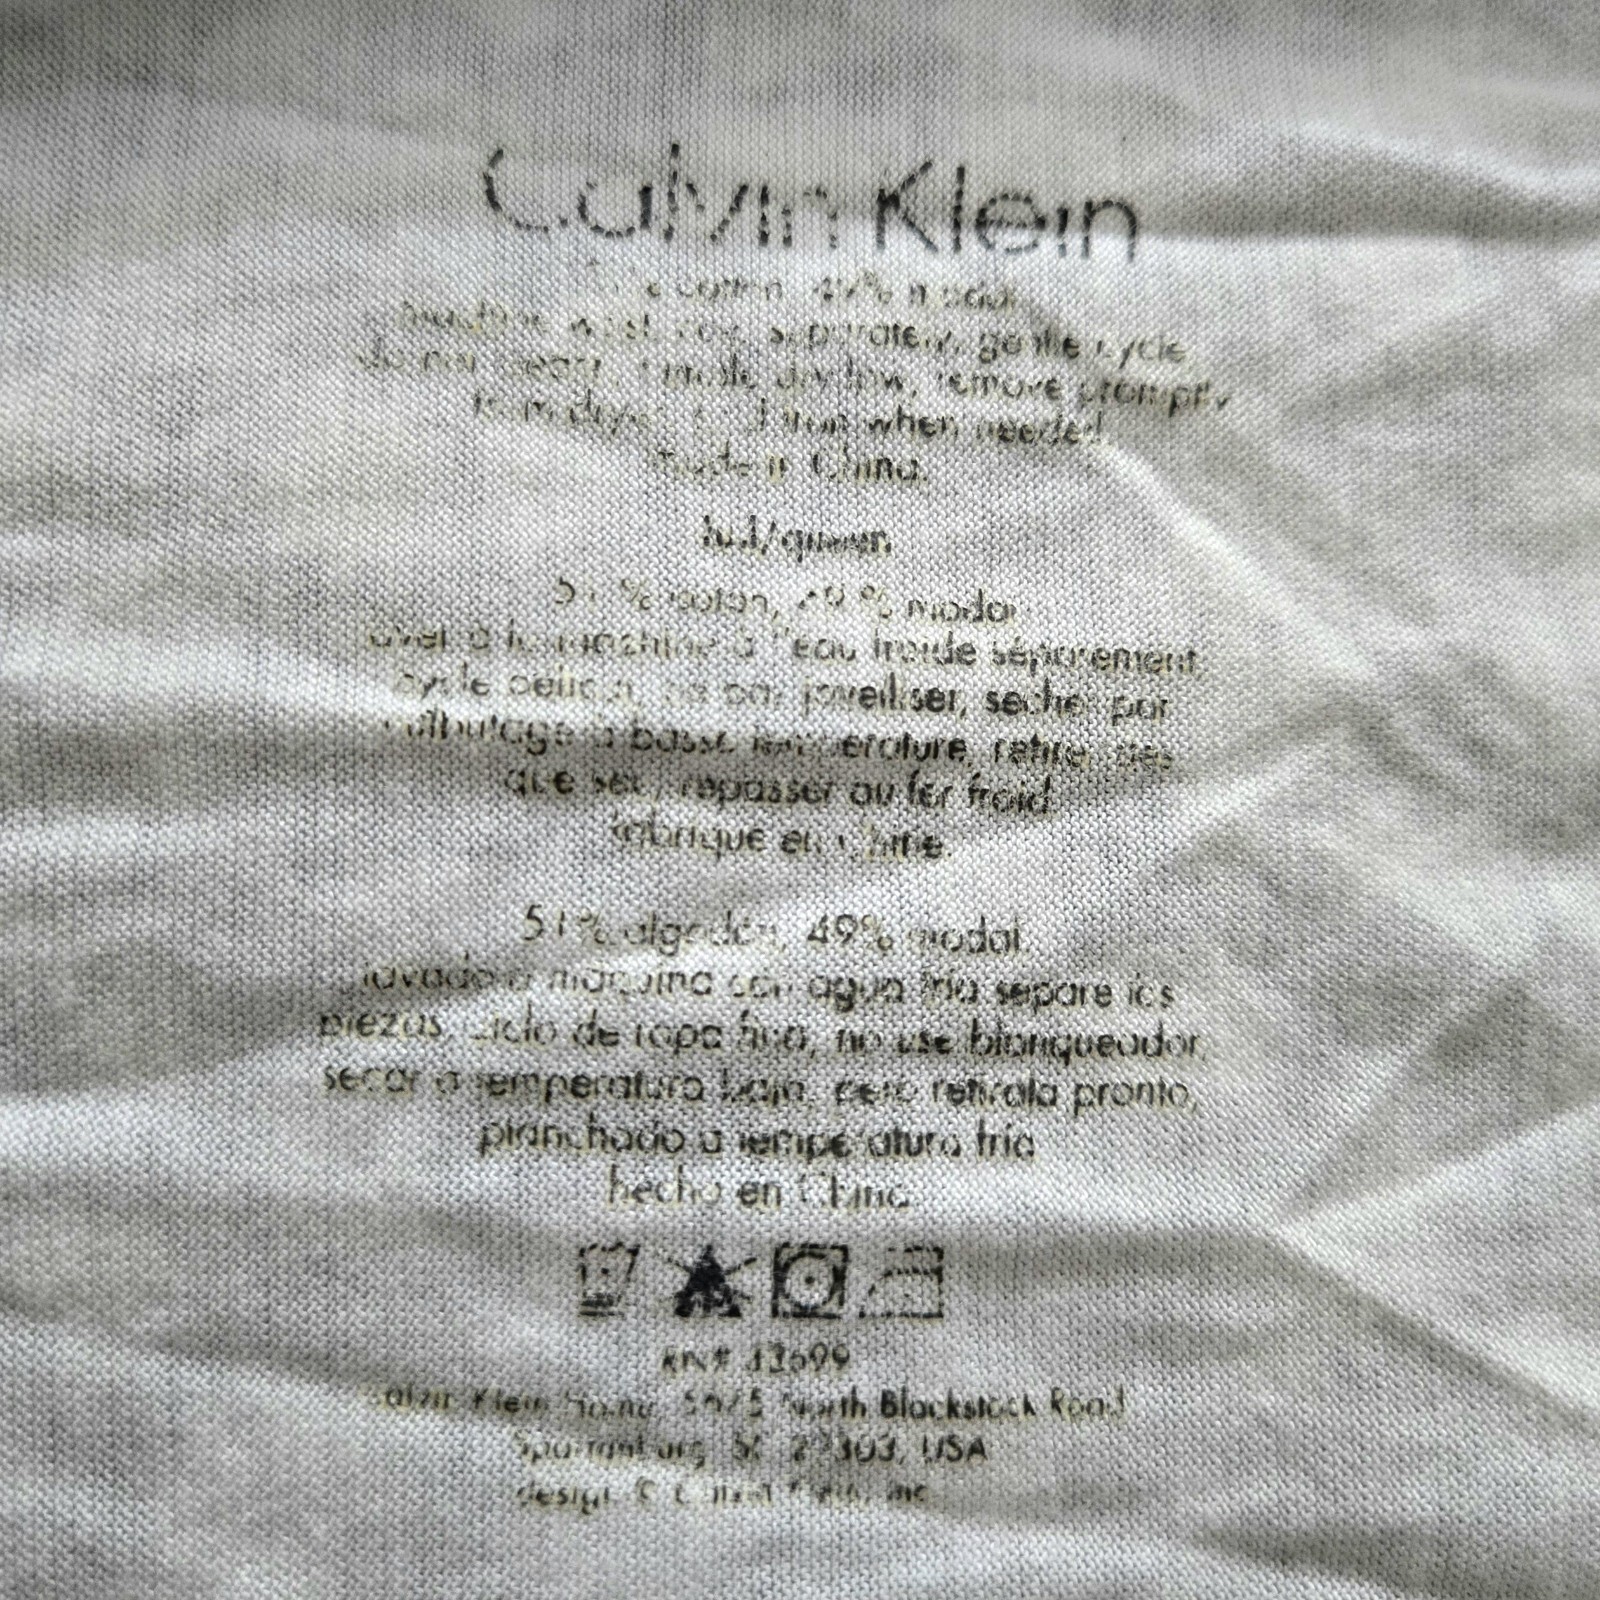 Calvin Klein
cotton, 49% modal
machine wash cold, separately, gentle cycle,
do not bleach, tumble dry low, remove promptly
from dryer, cool iron when needed.
made in China.
full/queen
51 % coton, 49 % modal
laver à la machine à l'eau froide séparément,
cycle délicat, ne pas javelliser, sécher par
culbutage à basse température, retirer dès
que sec, repasser au fer froid.
fabriqué en Chine.
51% algodón, 49% modal.
lavado a máquina con agua fría separe las
piezas, ciclo de ropa fina, no use blanqueador,
secar a temperatura baja, pero retirala pronto,
planchado a temperatura fría
hecho en China
RN# 13699
Calvin Klein Home, North Blackstock Road
Spartanburg, SC 29303, USA
design © Calvin Klein, Inc.